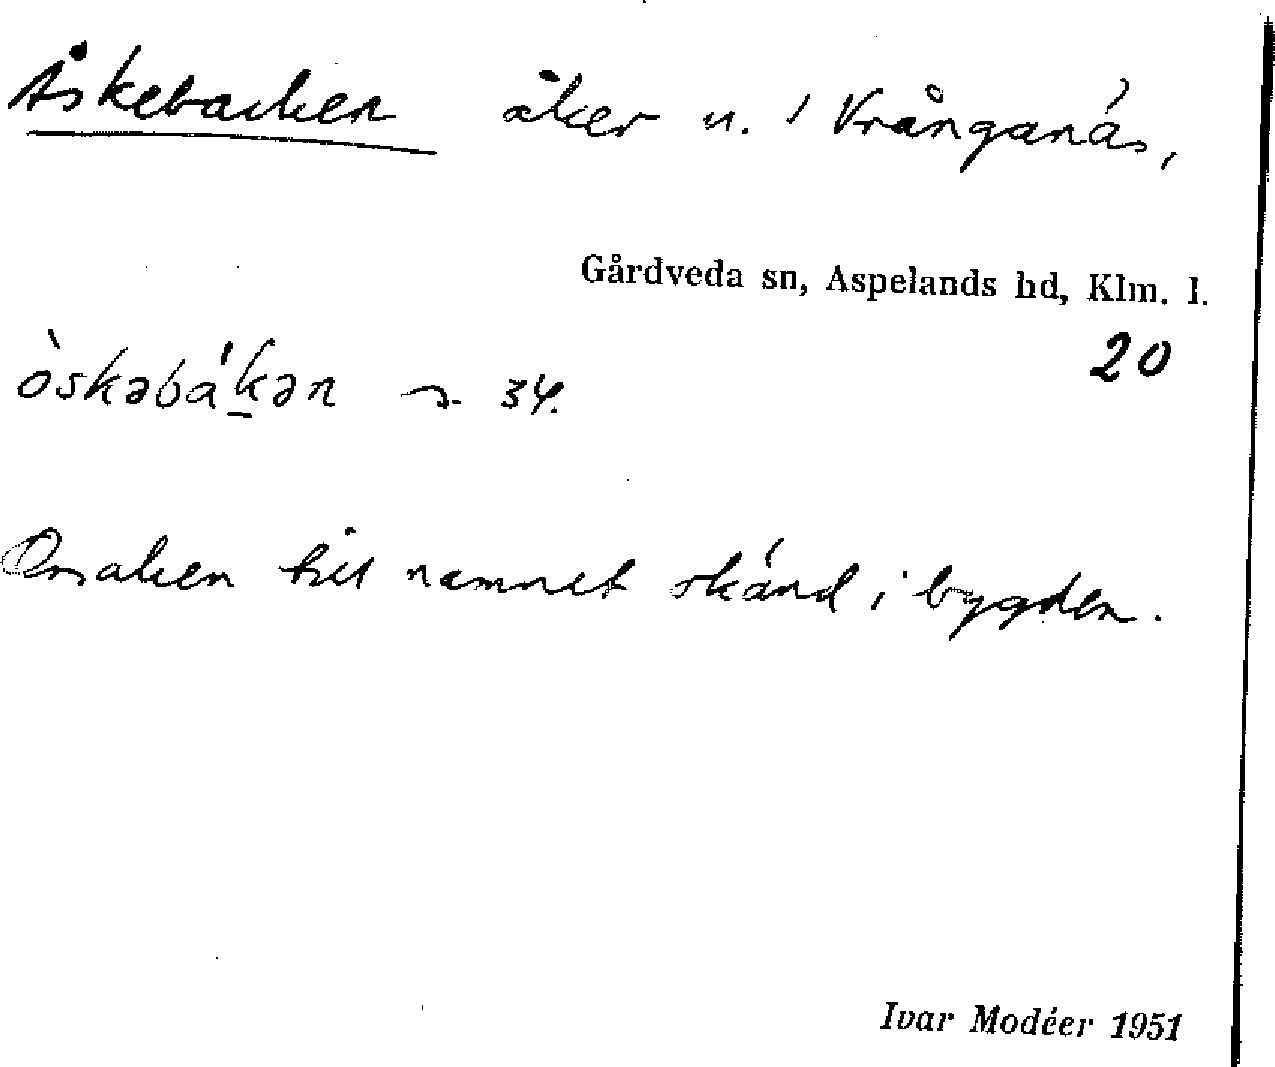 Åskebacken åker u. i Vrånganäs,
Gårdveda sn, Aspelands hd, Klm. l.
20
òskəbákən s. 34.
Orsaken till namnet okänd i bygden.
Ivar Modéer 1951